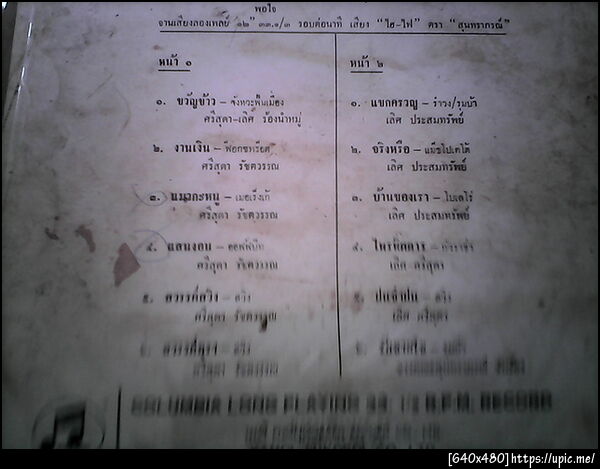 พอใจ
จานเสียงลองเพลย์ ๑๒" ๓๓.๑/๓ รอบต่อนาที เสียง "ไฮ-ไฟ" ตรา "สุนทราภรณ์"
หน้า ๑
๑. ขวัญข้าว – จังหวะพื้นเมือง
ศรีสุดา-เลิศ ร้องนำหมู่
๒. งานเงิน – ฟ็อกซทร็อต
ศรีสุดา รัชตวรรณ
๓. แมวกะหนู – เมอเร็งเก้
ศรีสุดา รัชตวรรณ
๔. แสนงอน – ออฟบีท
ศรีสุดา รัชตวรรณ
๕. สวรรค์สวิง – สวิง
ศรีสุดา รัชตวรรณ
– สวิง
ศรีสุดา รัชตวรรณ
หน้า ๒
๑. แขกครวญ – รำวง/รุมบ้า
เลิศ ประสมทรัพย์
๒. จริงหรือ – แม็ชโปเตโต้
เลิศ ประสมทรัพย์
๓. บ้านของเรา – โบเลโร่
เลิศ ประสมทรัพย์
๔.
เลิศ ศรีสุดา
๕. – สวิง
เลิศ ศรีสุดา
๖.
COLUMBIA LONG PLAYING 33 1/3 R.P.M. RECORD
[640x480]https://upic.me/